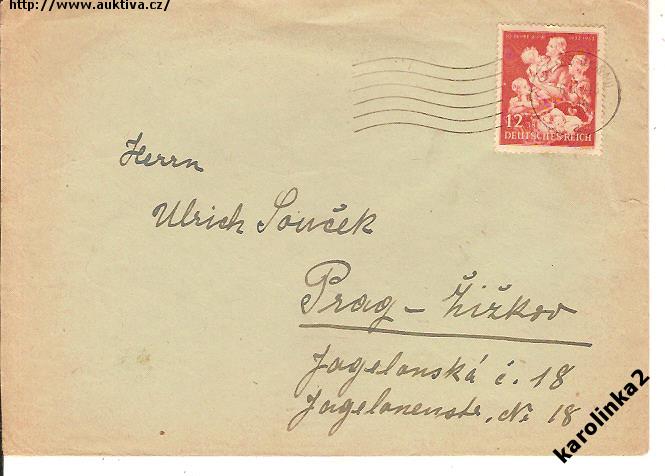 http://www.auktiva.cz/
12
DEUTSCHES REICH
Herrn
Ulrich Souček
Prag - Žižkov
Jagelonská č. 18
Jagelonenstr. Nr. 18
karolinka2